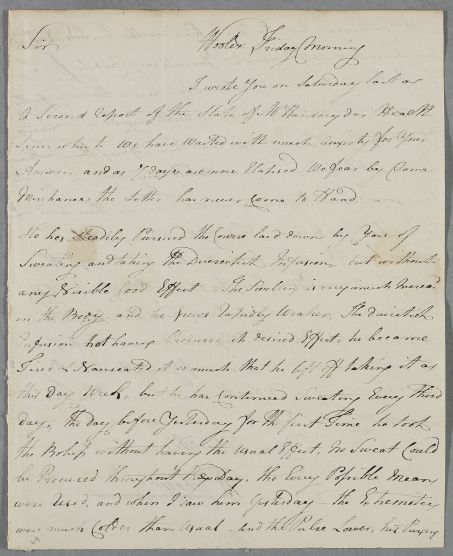 Sir, Wooler Friday Morning
I wrote You on Saturday last as
a Second report of the State of Mr Health
since which We have Waited with much anxiety for Your
Answer, and as 7 days are now Elapsed We fear by Some
Mischance the Letter has never come to Hand
He has Steadily Pursued the Course laid down by You of
Sweating and taking the Diuretick Infusion but without
any Visible Good Effect The Swelling is very much Increased
in the Body, and he grows Weaker, The Diuretick
Infusion not having Produced its desired Effect, he became
Tired & Nauseated at it so much that he left off taking it as
this Day Week, but he has Continued Sweating Every Third
day, The day before Yesterday for the first Time he took
the Bolus without having the Usual Effect, No Sweat Could
be Procured throughout the Day, tho Every Possible Means
were Used, and when I saw him Yesterday the Extremities
were much Colder than Usual and the Pulse Lower, his Purging